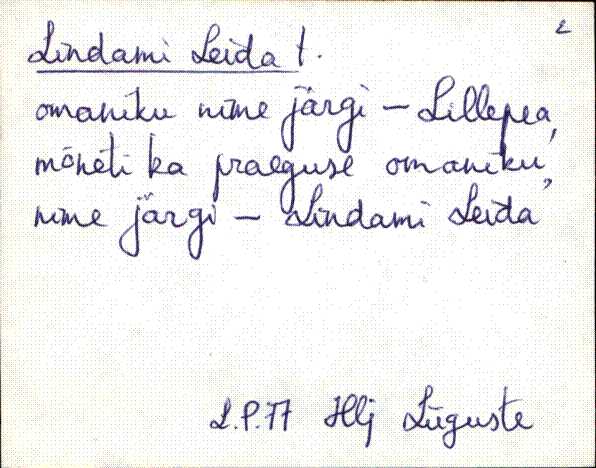 2
Lindami Leida t.
omaniku nime järgi – Lillepea,
mõneti ka praeguse omaniku,
nime järgi – Lindami Leida
L.P.77 Hlj Lüguste